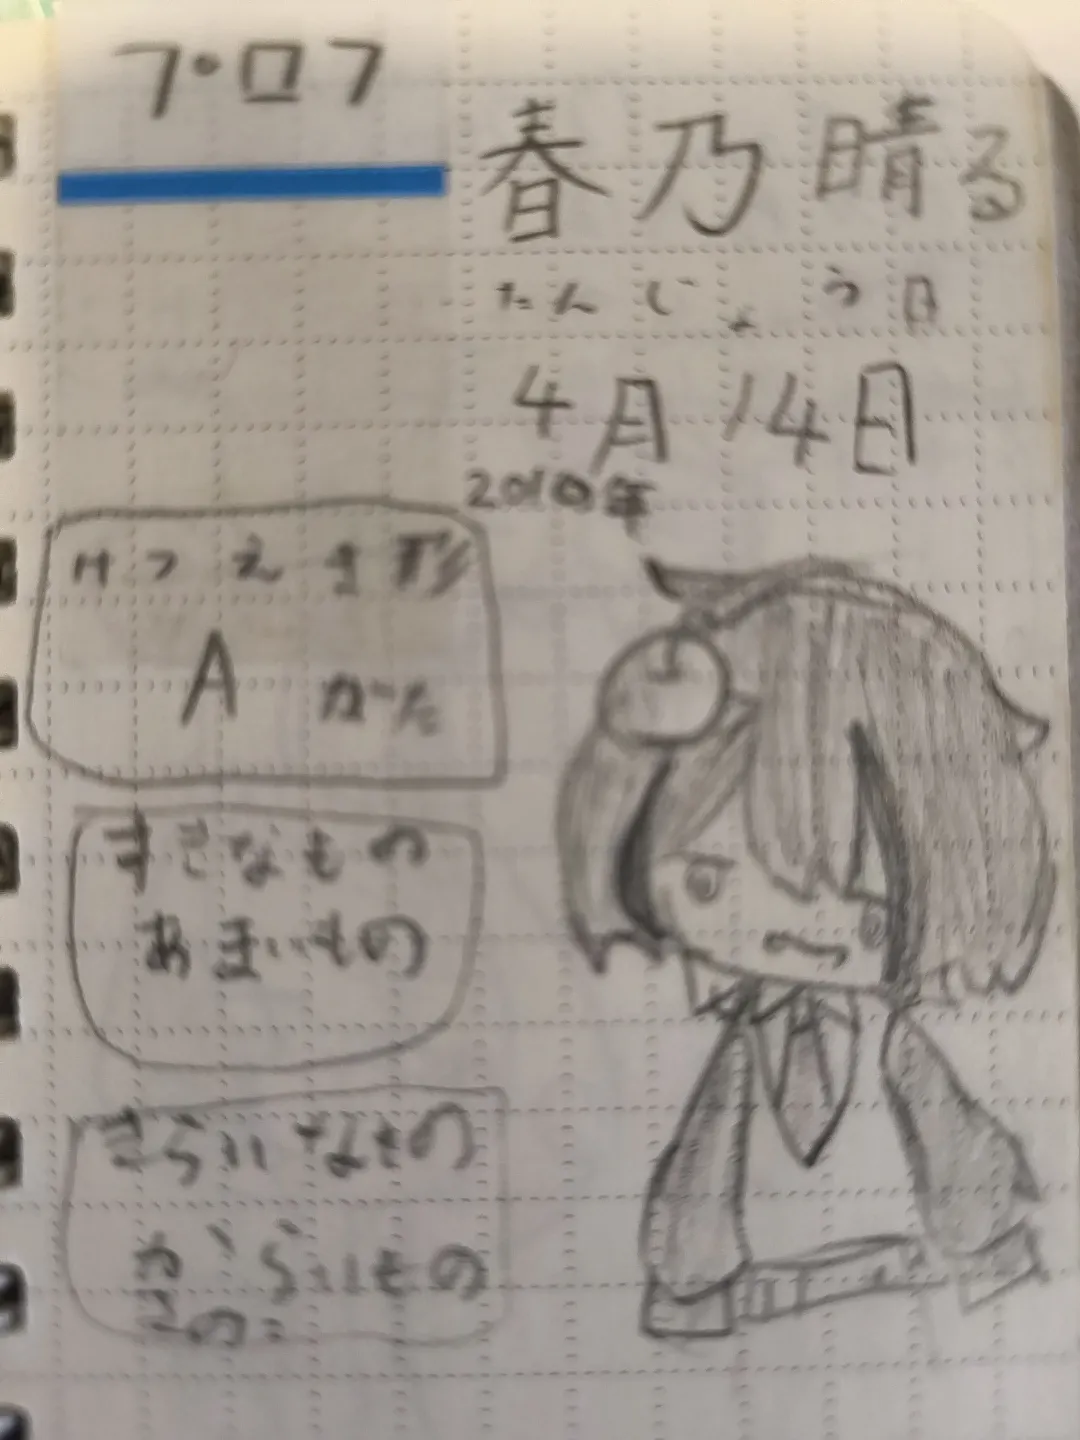 プロフ
春乃晴る
たんじょう日
4月14日
2010年
けつえき形
A がた
すきなもの
あまいもの
きらいなもの
からいもの